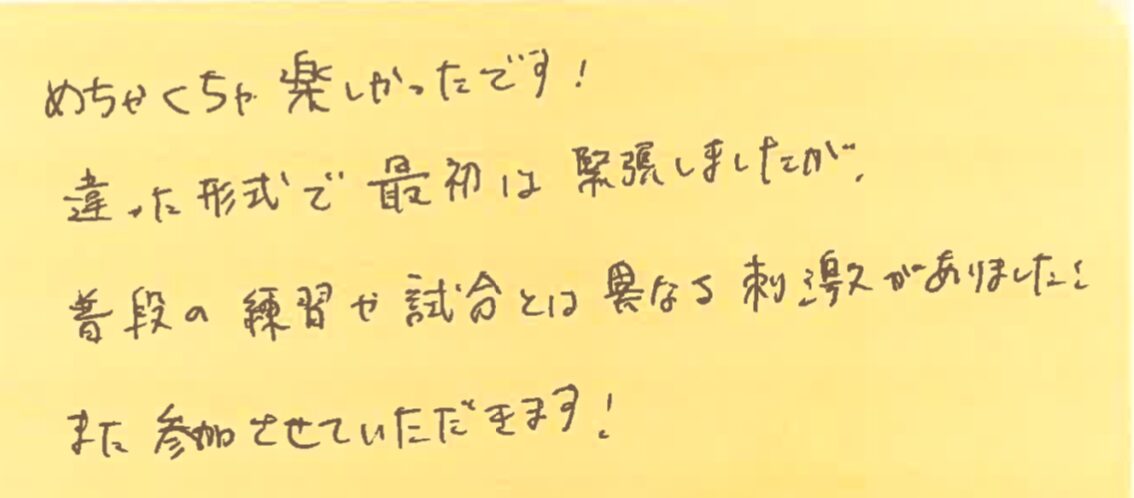 めちゃくちゃ楽しかったです!
違った形式で最初は緊張しましたが、
普段の練習や試合とは異なる刺激がありました!
また参加させていただきます!